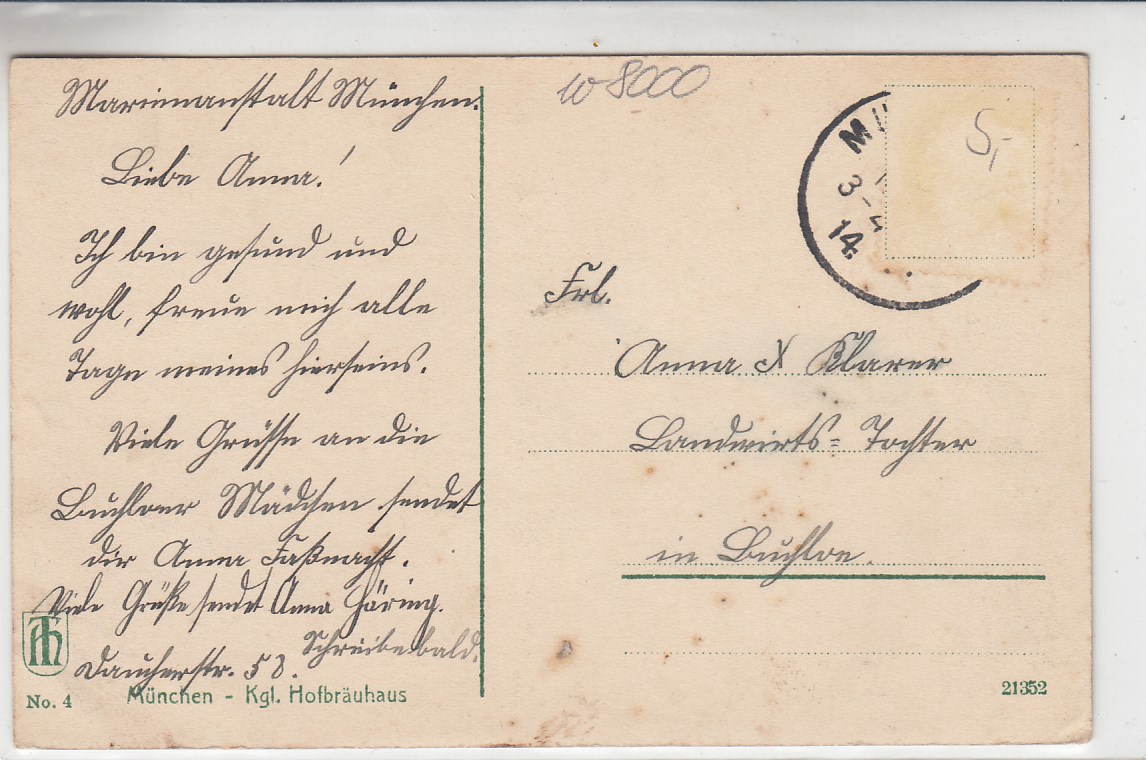 Marienanstalt München.
Liebe Anna!
Ich bin gesund und
wohl, freue mich alle
Tage meines hierseins.
Viele Grüsse an die
Buchloer Mädchen sendet
dir Anna Faßnacht.
Viele Grüße sendet Anna Häring.
Schreibe bald.
Daucherstr. 53.
No. 4
München - Kgl. Hofbräuhaus
w 8000
5,-
MÜ
3-4
14.
Frl.
Anna X Klarer
Landwirts= Tochter
in Buchloe.
21352